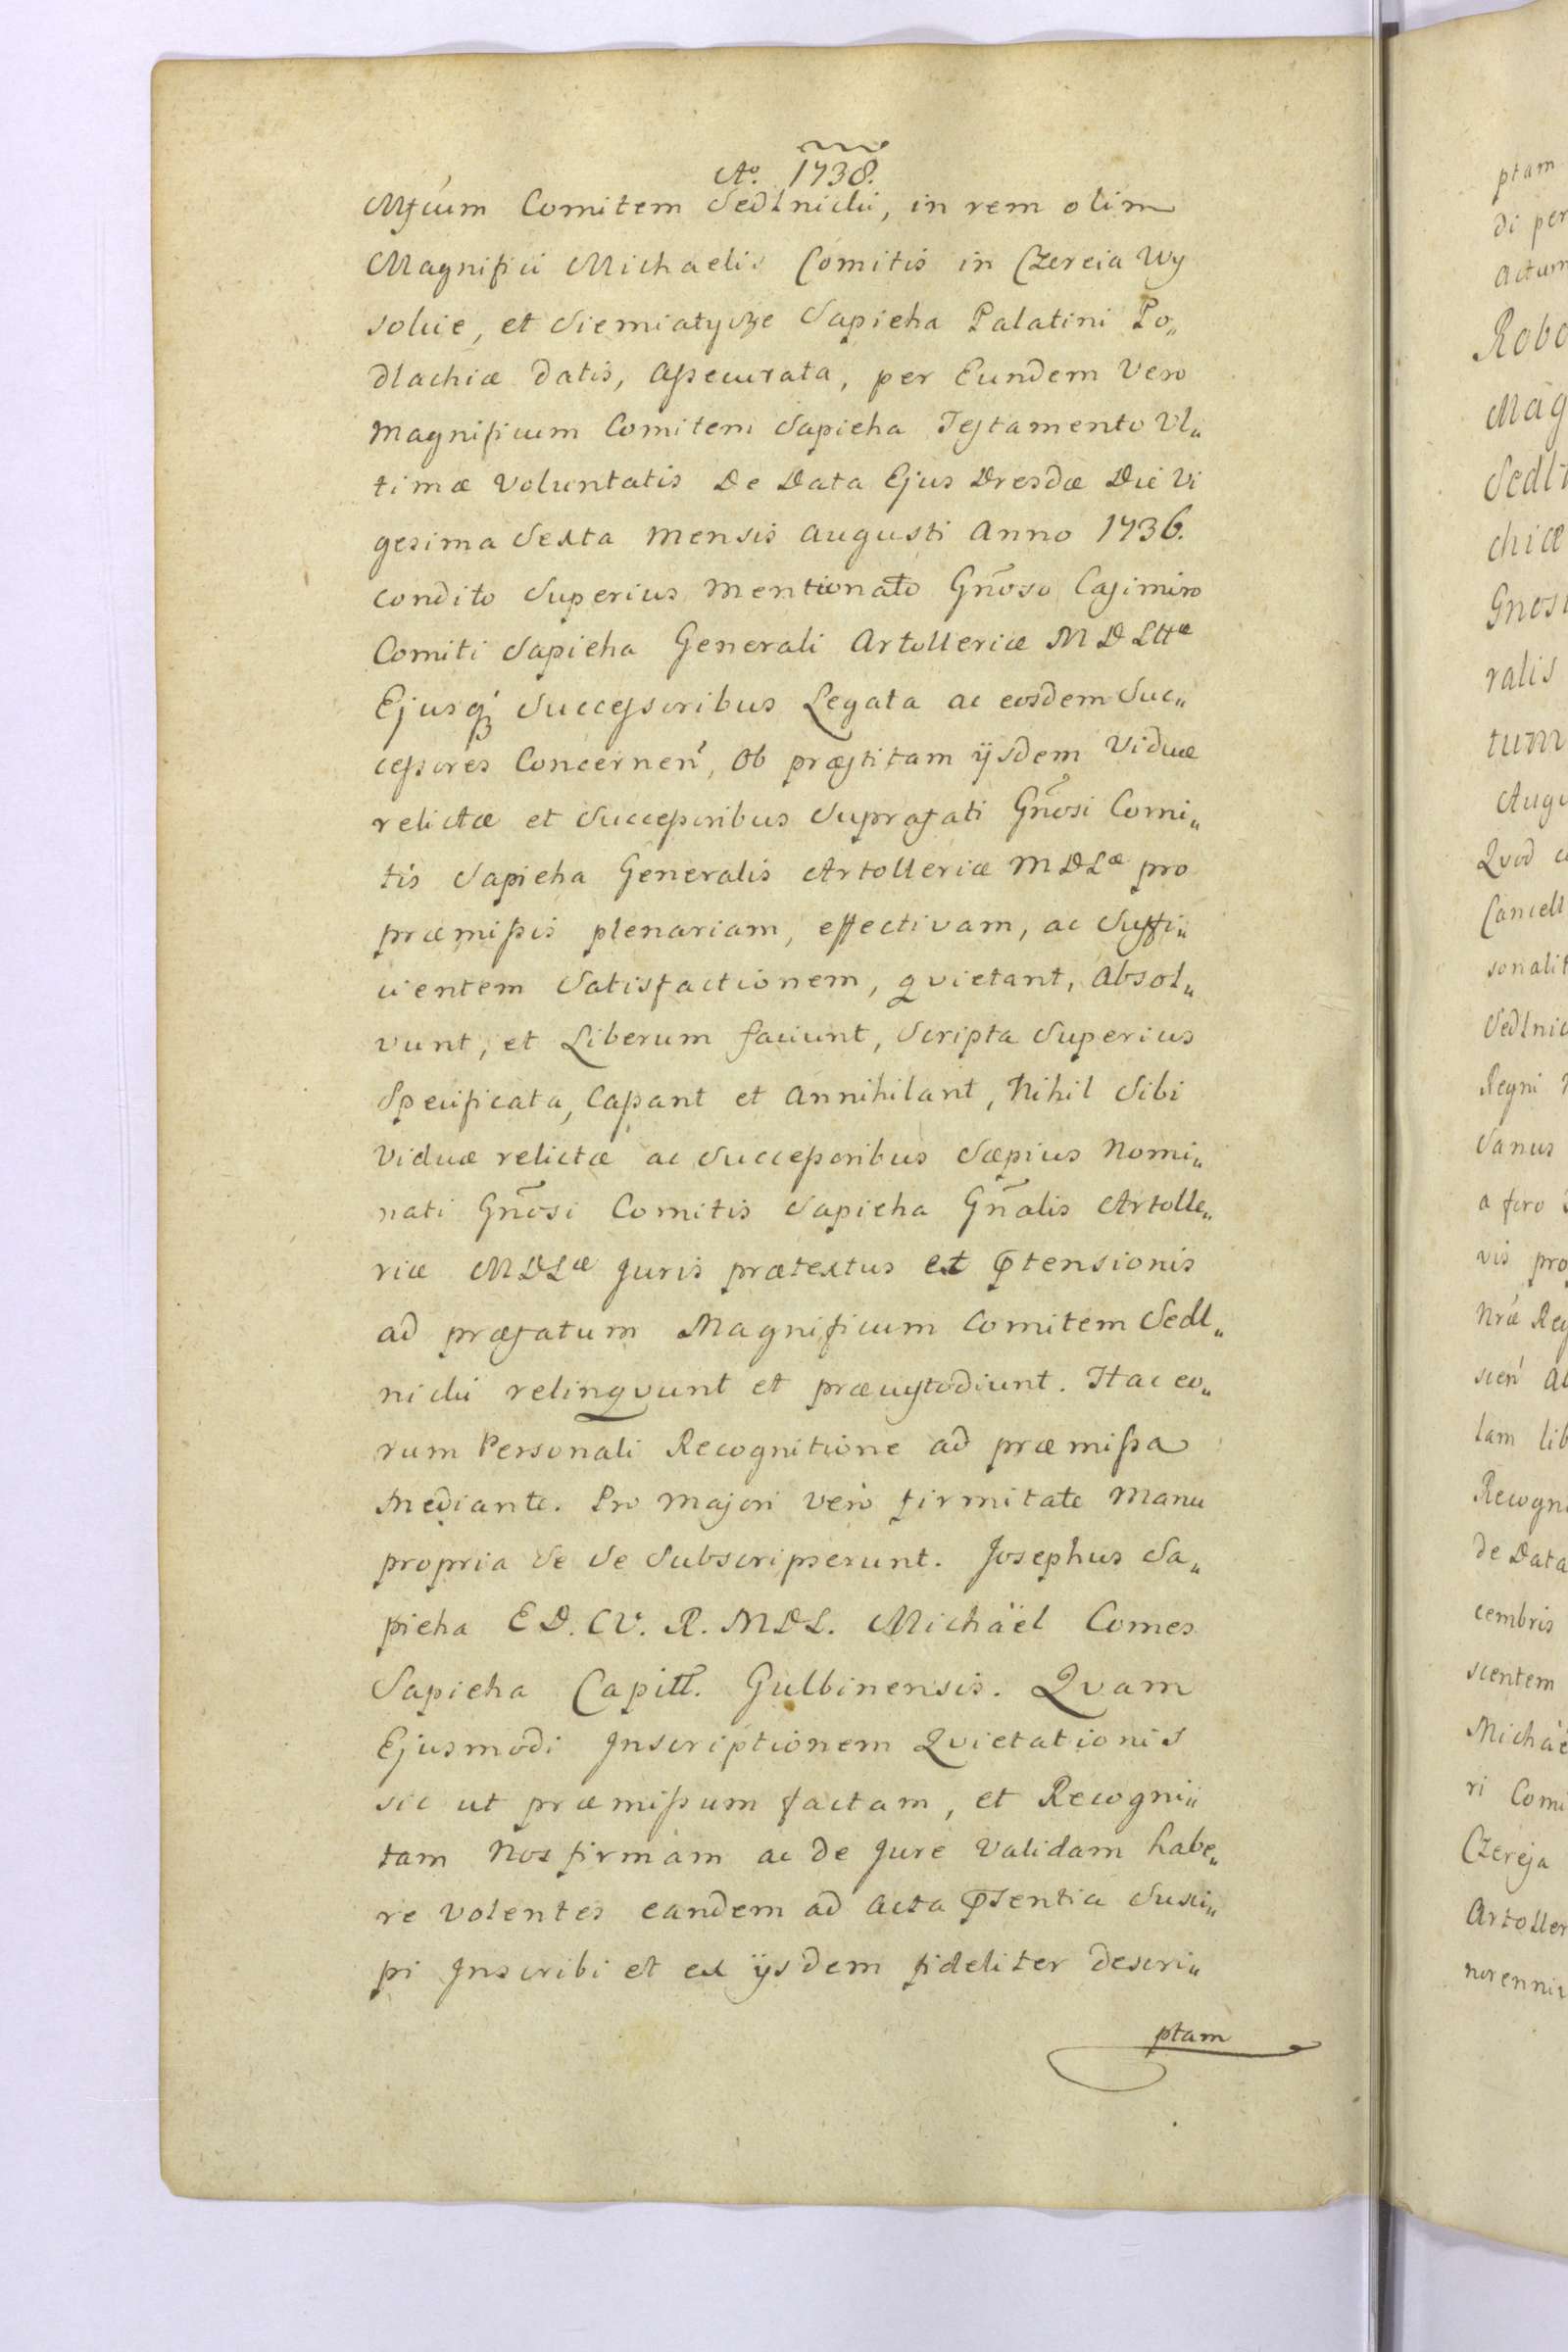 Aº. 1738.
Mfcum Comitem Sedlnicki, in rem olim
Magnifici Michaelis Comitis in Czereia Wy
sokie, et Siemiatycze Sapieha Palatini Po„
dlachiæ datis, Assecurata, per Eundem Vero
Magnificum Comitem Sapieha Testamento Ul„
timæ Voluntatis De Data Ejus Dresdæ Die Vi
gesima Sexta Mensis Augusti Anno 1736.
condito Superius Mentionato Gñoso Casimiro
Comiti Sapieha Generali Artolleriæ M D Lttæ
Ejusq; Successoribus Legata ac eosdem Suc„
cessores Concernen', Ob præstitam ijsdem Viduæ
relictæ et Successoribus Suprafati Gñosi Comi„
tis Sapieha Generalis Artolleriæ M D Læ pro
præmissis plenariam, effectivam, ac Suffi„
cientem Satisfactionem, qvietant, Absol„
vunt, et Liberum faciunt, Scripta Superius
Specificata, Cassant et Annihilant, Nihil Sibi
Viduæ relictæ ac Successoribus Sæpius Nomi„
nati Gñosi Comitis Sapieha Gñalis Artolle„
riæ MDLæ Juris prætextus et ꝓtensionis
ad præfatum Magnificum Comitem Sedl„
nicki relinqvunt et præcustodiunt. Hac eo„
rum Personali Recognitione ad præmissa
Mediante. Pro Majori verò firmitate Manu
propria Se Se Subscripserunt. Josephus Sa„
pieha E D. C V. R. M D L. Michäel Comes
Sapieha Capitt. Gulbinensis. Qvam
Ejusmodi Inscriptionem Qvietationis
sic ut præmissum factam, et Recogni„
tam Nos firmam ac de Jure Validam habe„
re Volentes eandem ad Acta ꝓsentia Susci„
pi Inscribi et ex ijsdem fideliter descri„
ptam
ptam
di per
Actum
Robo
Mag
Sedl
chiæ
Gnosi
ralis
tum
Augu
Qvod
Cancell
sonalit
Sedlnic
Regni
Sanus
a foro
vis pro
Nræ Reg
scen'
lam lib
Recogni
de Data
cembris
scentem
Michäe
ri Comi
Czereja
Artoller